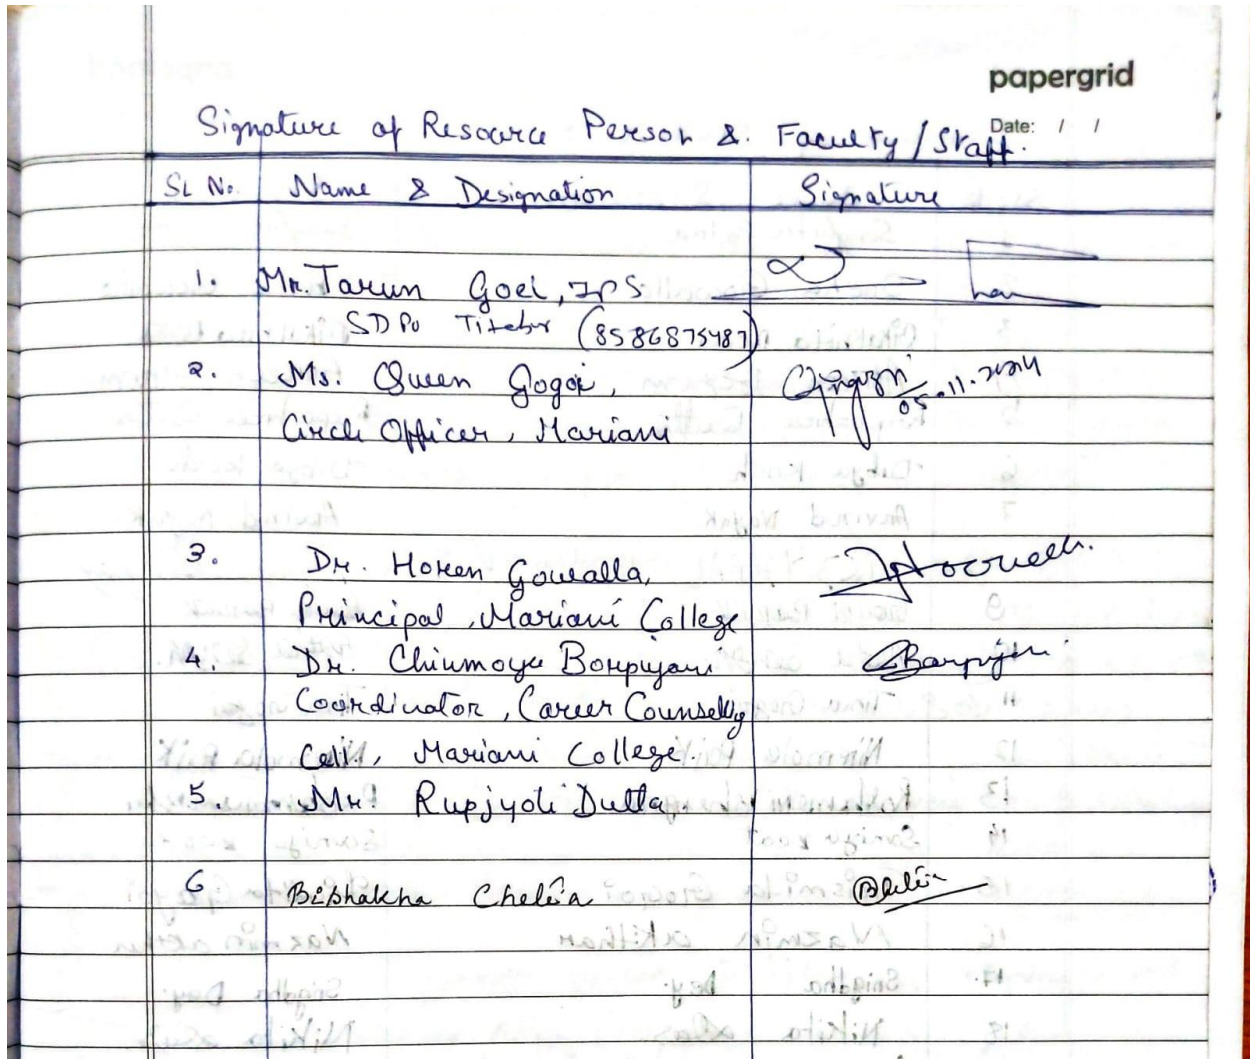 papergrid
Date: / /
Signature of Resource Person & Faculty / Staff.
SL No. Name & Designation Signature
1. Mr. Tarun Goel, IPS
SDPO Titabor (8586875487)
2. Ms. Queen Gogoi,
05.11.2024
Circle Officer, Mariani
3. Dr. Horen Gowalla,
Principal, Mariani College
4. Dr. Chinmoyee Borpujari Borpujari
Coordinator, Career Counselling
Cell, Mariani College.
5. Mr. Rupjyoti Dutta
6 Bishakha Cheleia